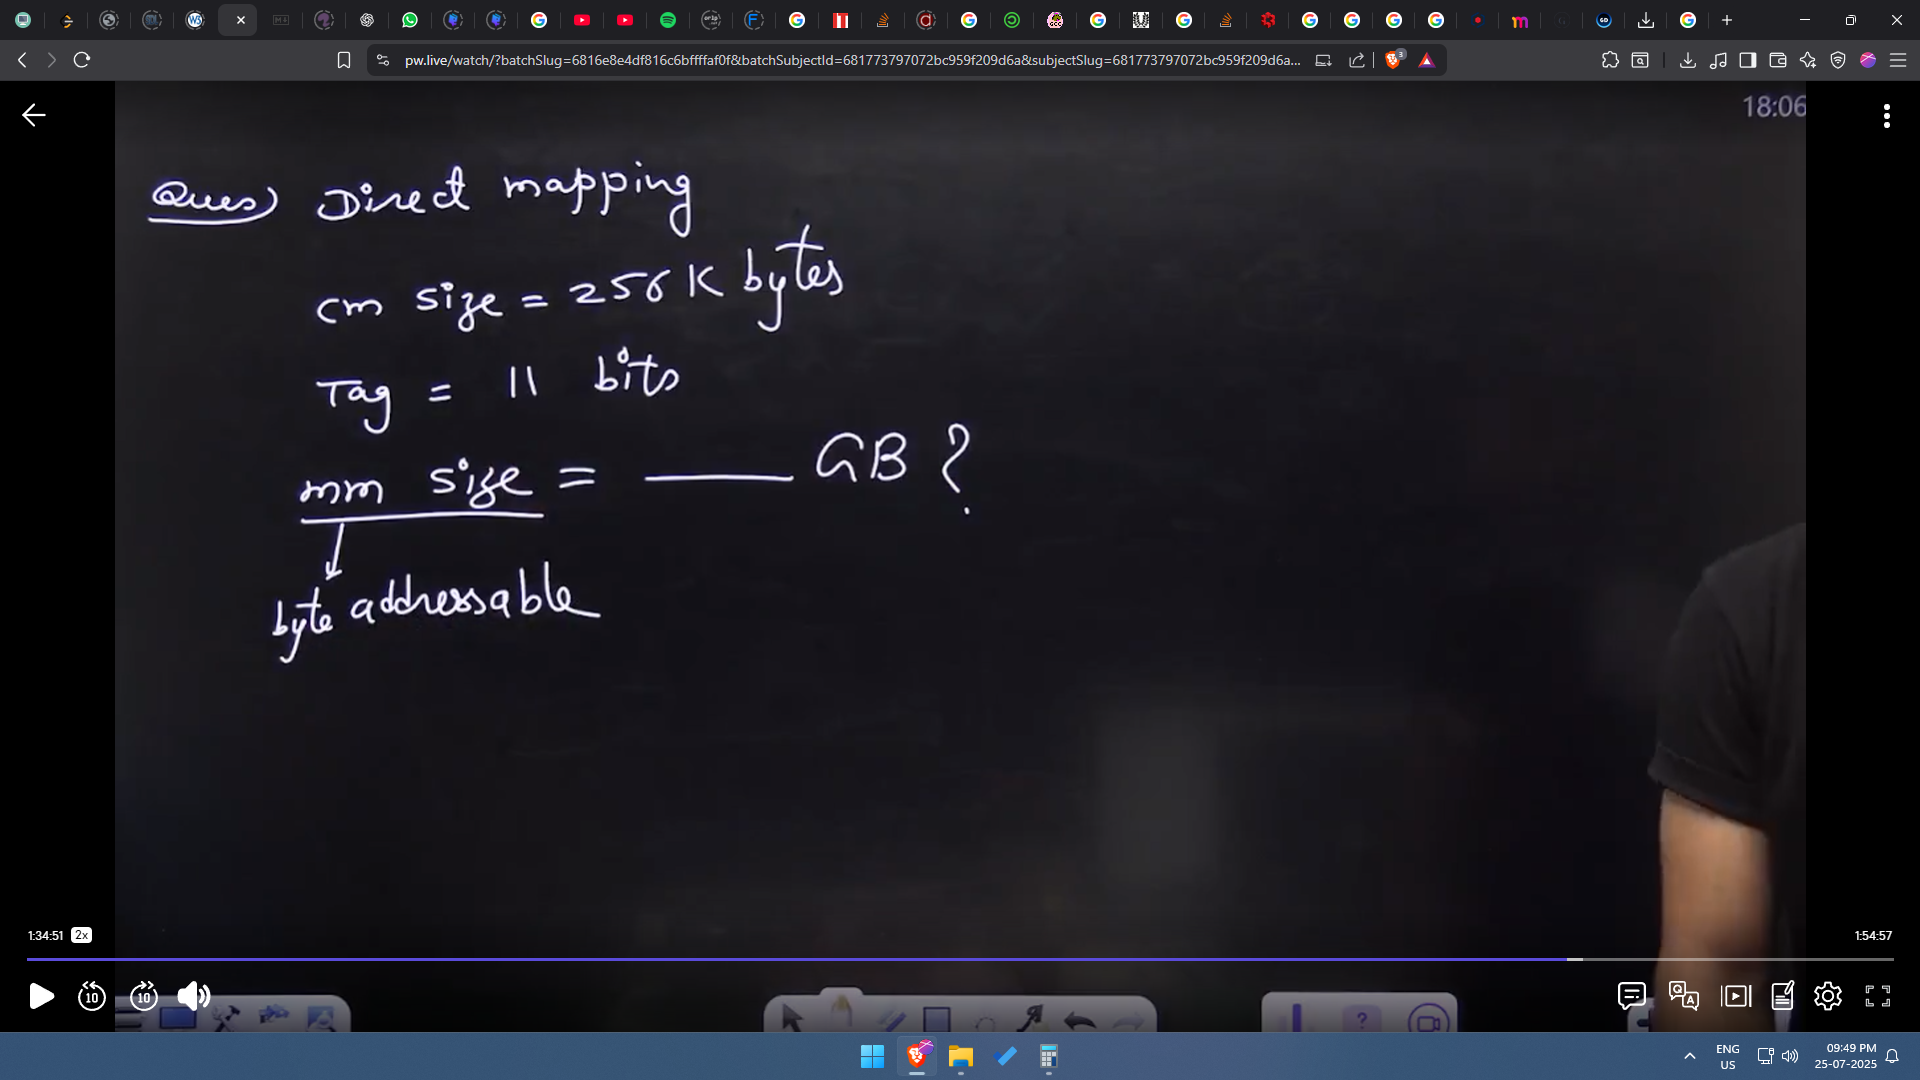 pw.live/watch/?batchSlug=6816e8e4df816c6bffffaf0f&batchSubjectId=681773797072bc959f209d6a&subjectSlug=681773797072bc959f209d6a...
18:06
Ques) Direct mapping
cm size = 256K bytes
Tag = 11 bits
mm size = ____ GB ?
byte addressable
1:34:51 2x
1:54:57
10 10
ENG
US
09:49 PM
25-07-2025